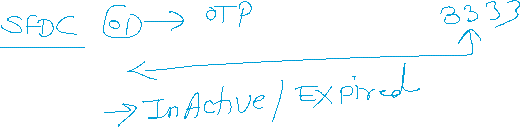 SFDC OD → OTP 3333
→ InActive / Expired